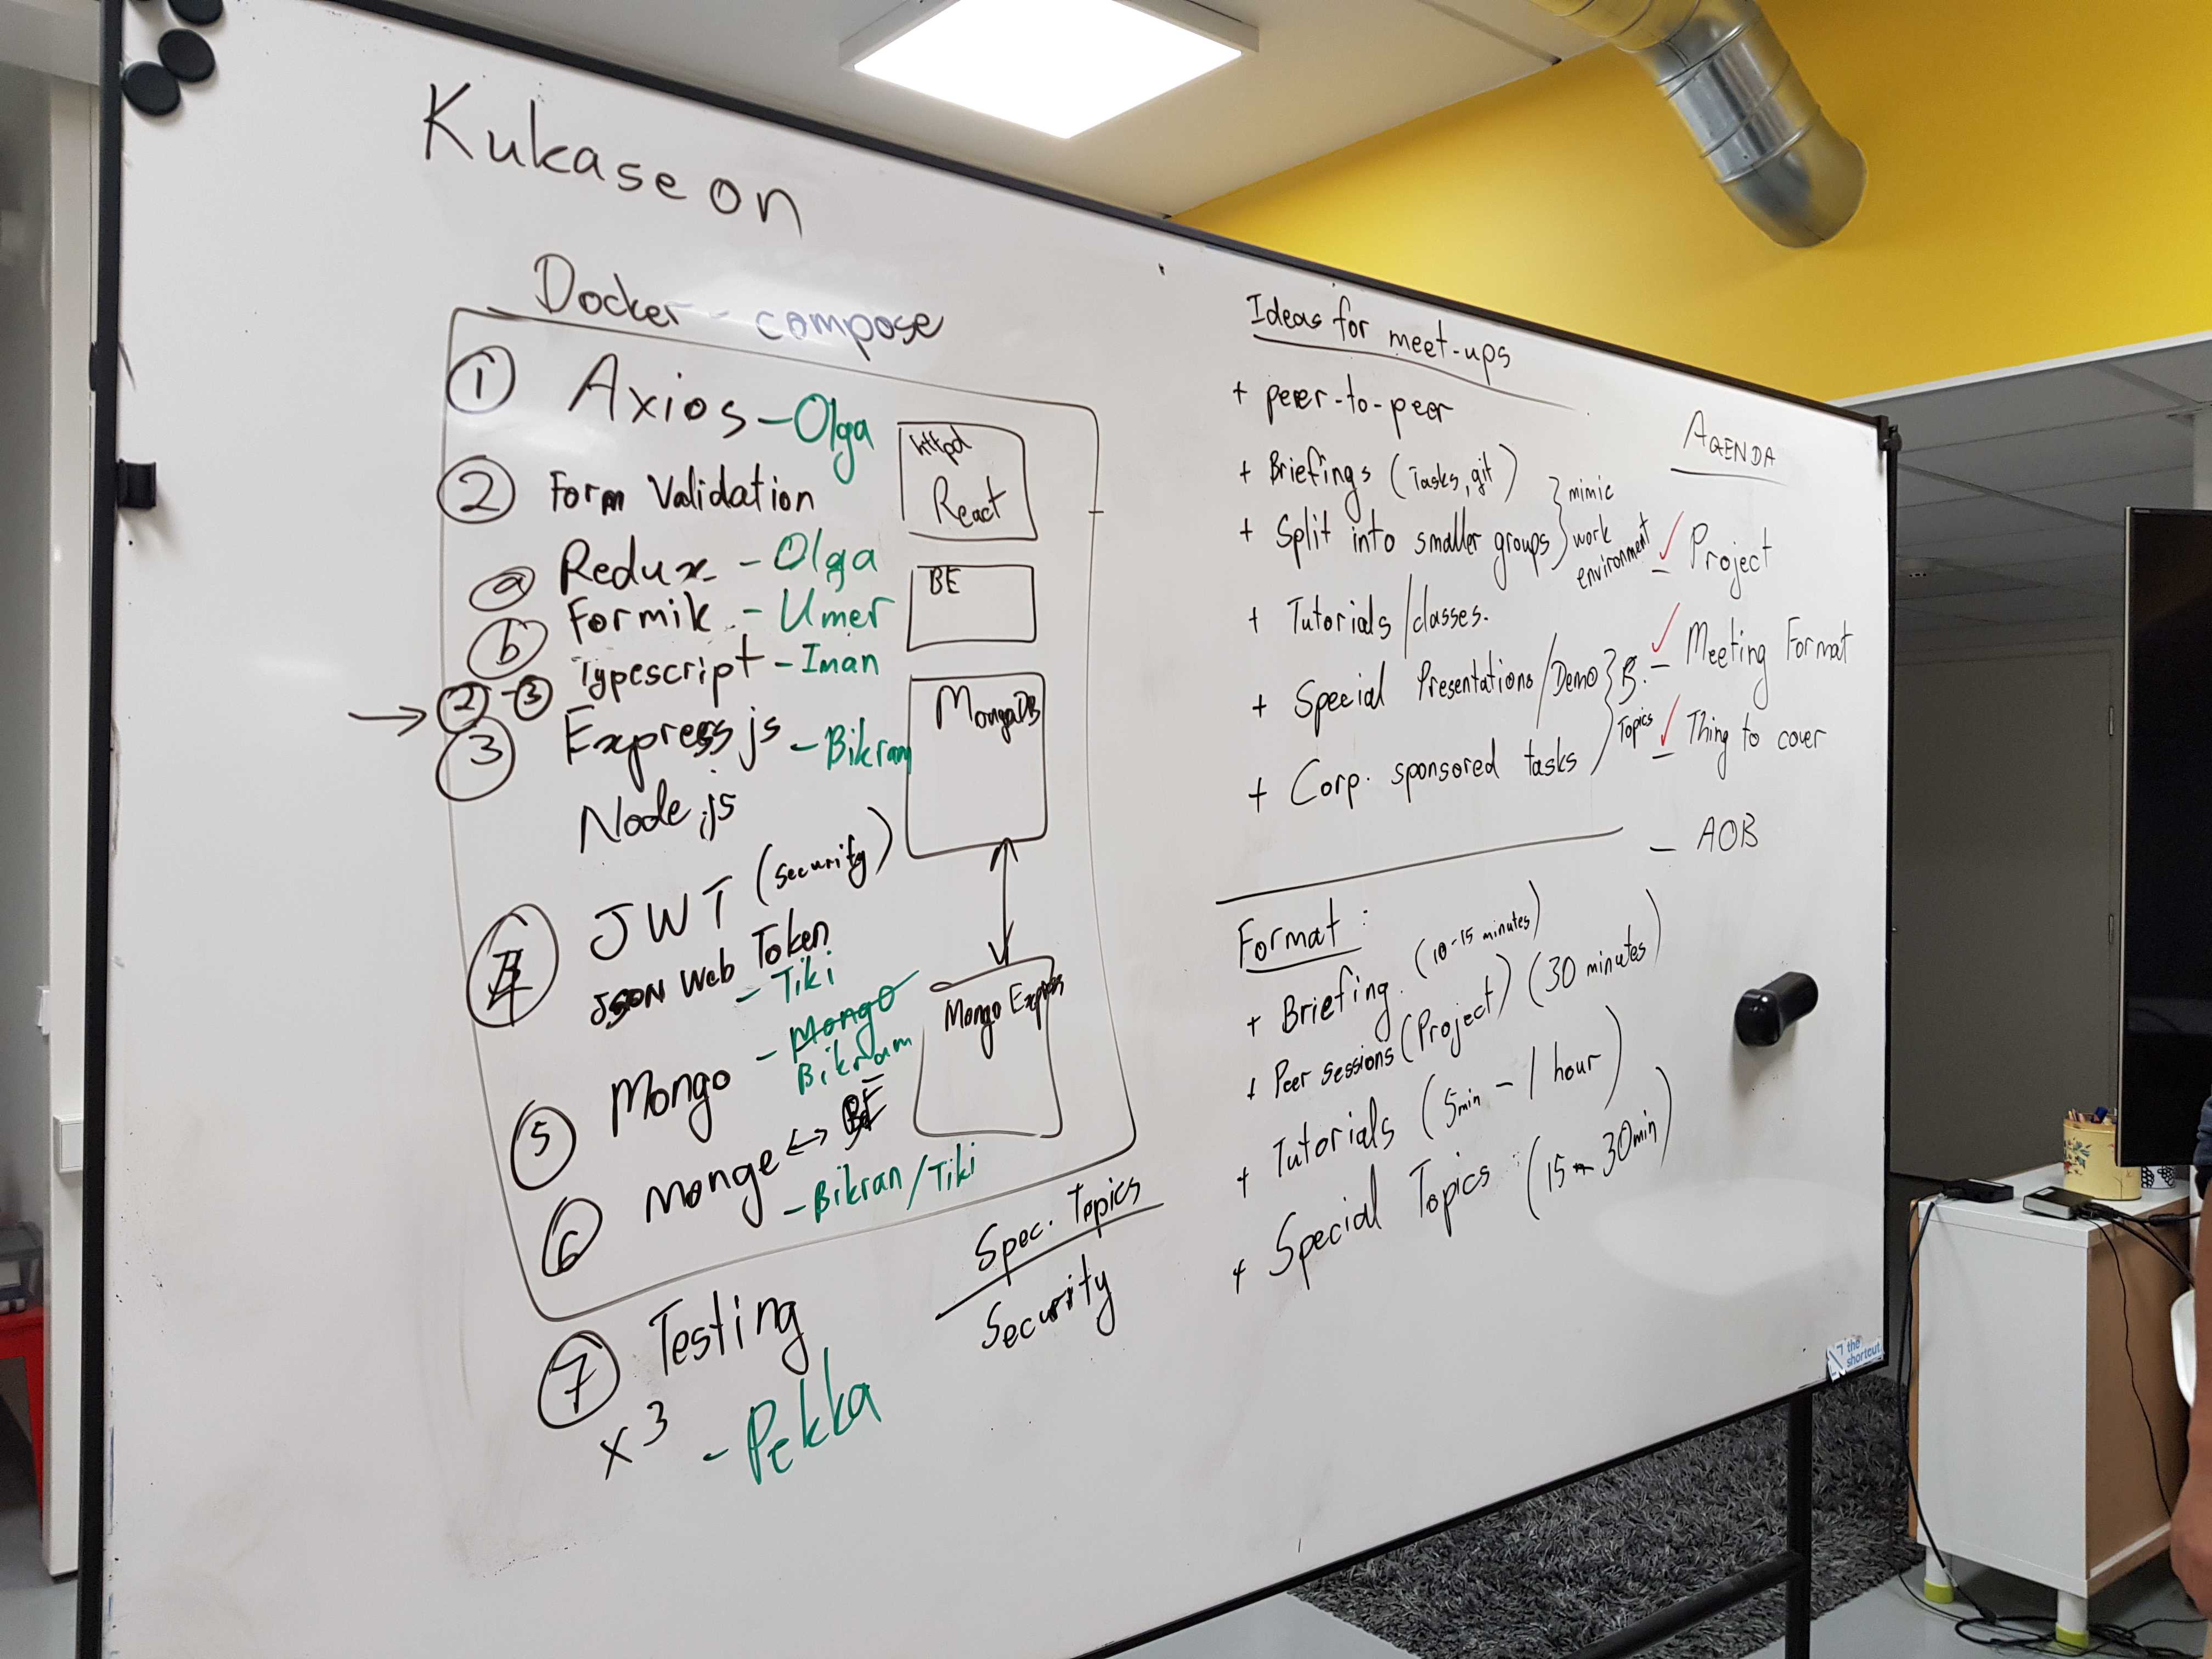 Kukaseon
Docker - compose
① Axios - Olga
② Form Validation
ⓐ Redux - Olga
ⓑ Formik - Umer
→ ②-③ Typescript - Iman
③ Express js - Bikram
Node.js
④ JWT (security)
JSON Web Token
- Tiki
⑤ Mongo - Mongo
Bikram
⑥ monge ↔ BE
- Bikran/Tiki
⑦ Testing
x3 - Pekka
httpd
React
BE
MongoDB
Mongo Express
Spec. Topics
Security
Ideas for meet-ups
+ peer-to-peer
+ Briefings (Tasks, git)
+ Split into smaller groups
mimic
work
environment
+ Tutorials/classes.
+ Special Presentations/Demo
+ Corp. sponsored tasks
Topics
Format:
+ Briefing. (10-15 minutes)
+ Peer sessions (Project) (30 minutes)
+ Tutorials (5min - 1 hour)
+ Special Topics: (15 - 30min)
AGENDA
✓ - Project
✓ - Meeting Format
✓ - Thing to cover
- AOB
the
shortcut